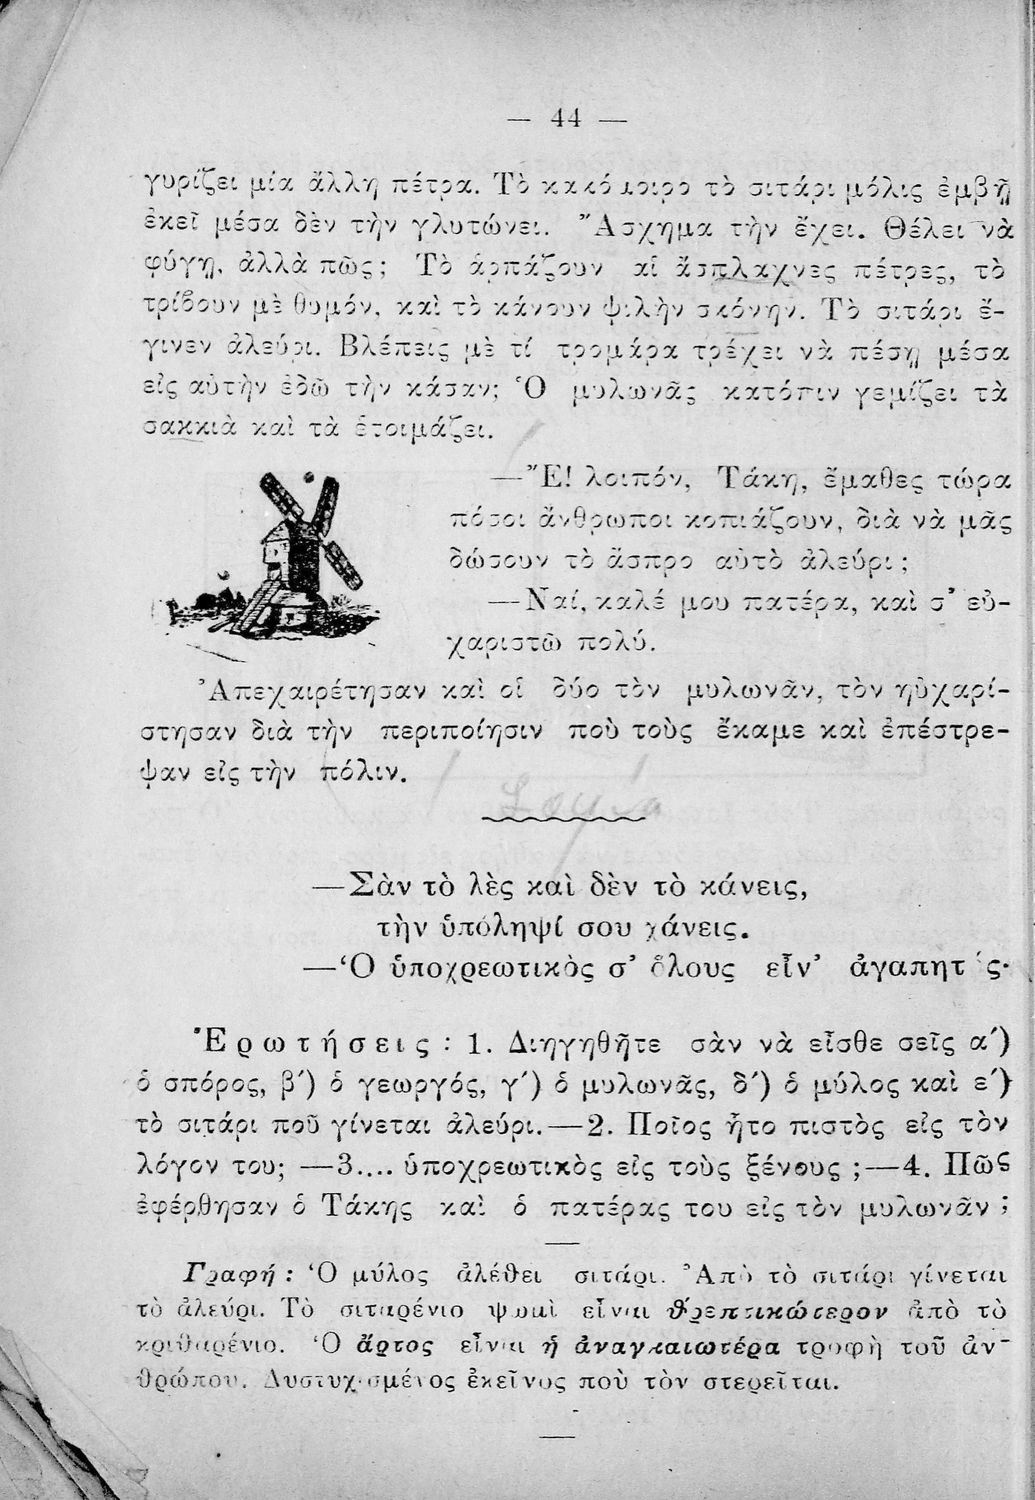 — 44 —
γυρίζει μία ἄλλη πέτρα. Τὸ κακόμοιρο τὸ σιτάρι μόλις ἐμβῇ
ἐκεῖ μέσα δὲν τὴν γλυτώνει. Ἄσχημα τὴν ἔχει. Θέλει νὰ
φύγῃ, ἀλλὰ πῶς; Τὸ ἁρπάζουν αἱ ἄσπλαχνες πέτρες, τὸ
τρίβουν μὲ θυμόν, καὶ τὸ κάνουν ψιλὴν σκόνην. Τὸ σιτάρι ἔ-
γινεν ἀλεύρι. Βλέπεις μὲ τί τρομάρα τρέχει νὰ πέσῃ μέσα
εἰς αὐτὴν ἐδῶ τὴν κάσαν; Ὁ μυλωνᾶς κατόπιν γεμίζει τὰ
σακκιὰ καὶ τὰ ἑτοιμάζει.
—Ἔ! λοιπόν, Τάκη, ἔμαθες τώρα
πόσοι ἄνθρωποι κοπιάζουν, διὰ νὰ μᾶς
δώσουν τὸ ἄσπρο αὐτὸ ἀλεύρι;
—Ναί, καλέ μου πατέρα, καὶ σ' εὐ-
χαριστῶ πολύ.
Ἀπεχαιρέτησαν καὶ οἱ δύο τὸν μυλωνᾶν, τὸν ηὐχαρί-
στησαν διὰ τὴν περιποίησιν ποὺ τοὺς ἔκαμε καὶ ἐπέστρε-
ψαν εἰς τὴν πόλιν.
—Σὰν τὸ λὲς καὶ δὲν τὸ κάνεις,
τὴν ὑπόληψί σου χάνεις.
—Ὁ ὑποχρεωτικὸς σ' ὅλους εἶν' ἀγαπητός·
Ἐρωτήσεις: 1. Διηγηθῆτε σὰν νὰ εἶσθε σεῖς α΄)
ὁ σπόρος, β΄) ὁ γεωργός, γ΄) ὁ μυλωνᾶς, δ΄) ὁ μύλος καὶ ε΄)
τὸ σιτάρι ποῦ γίνεται ἀλεύρι.—2. Ποῖος ἦτο πιστὸς εἰς τὸν
λόγον του; —3.... ὑποχρεωτικὸς εἰς τοὺς ξένους ;—4. Πῶς
ἐφέρθησαν ὁ Τάκης καὶ ὁ πατέρας του εἰς τὸν μυλωνᾶν ;
Γραφή : Ὁ μύλος ἀλέθει σιτάρι. Ἀπὸ τὸ σιτάρι γίνεται
τὸ ἀλεύρι. Τὸ σιταρένιο ψωμὶ εἶναι θρεπτικώτερον ἀπὸ τὸ
κριθαρένιο. Ὁ ἄρτος εἶναι ἡ ἀναγκαιωτέρα τροφὴ τοῦ ἀν-
θρώπου. Δυστυχισμένος ἐκεῖνος ποὺ τὸν στερεῖται.